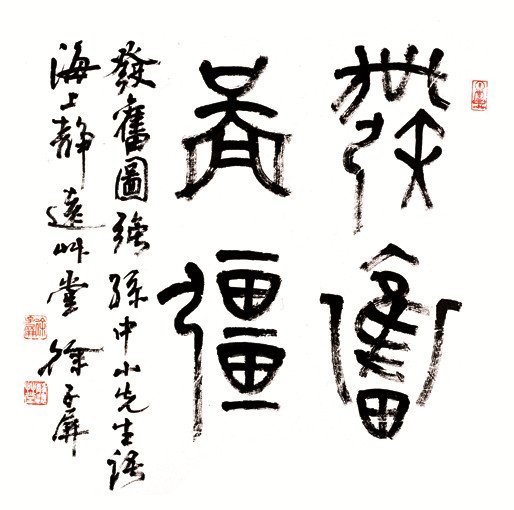 發奮
圖彊
發奮圖強孫中山先生語
海上靜遠艸堂徐子屏